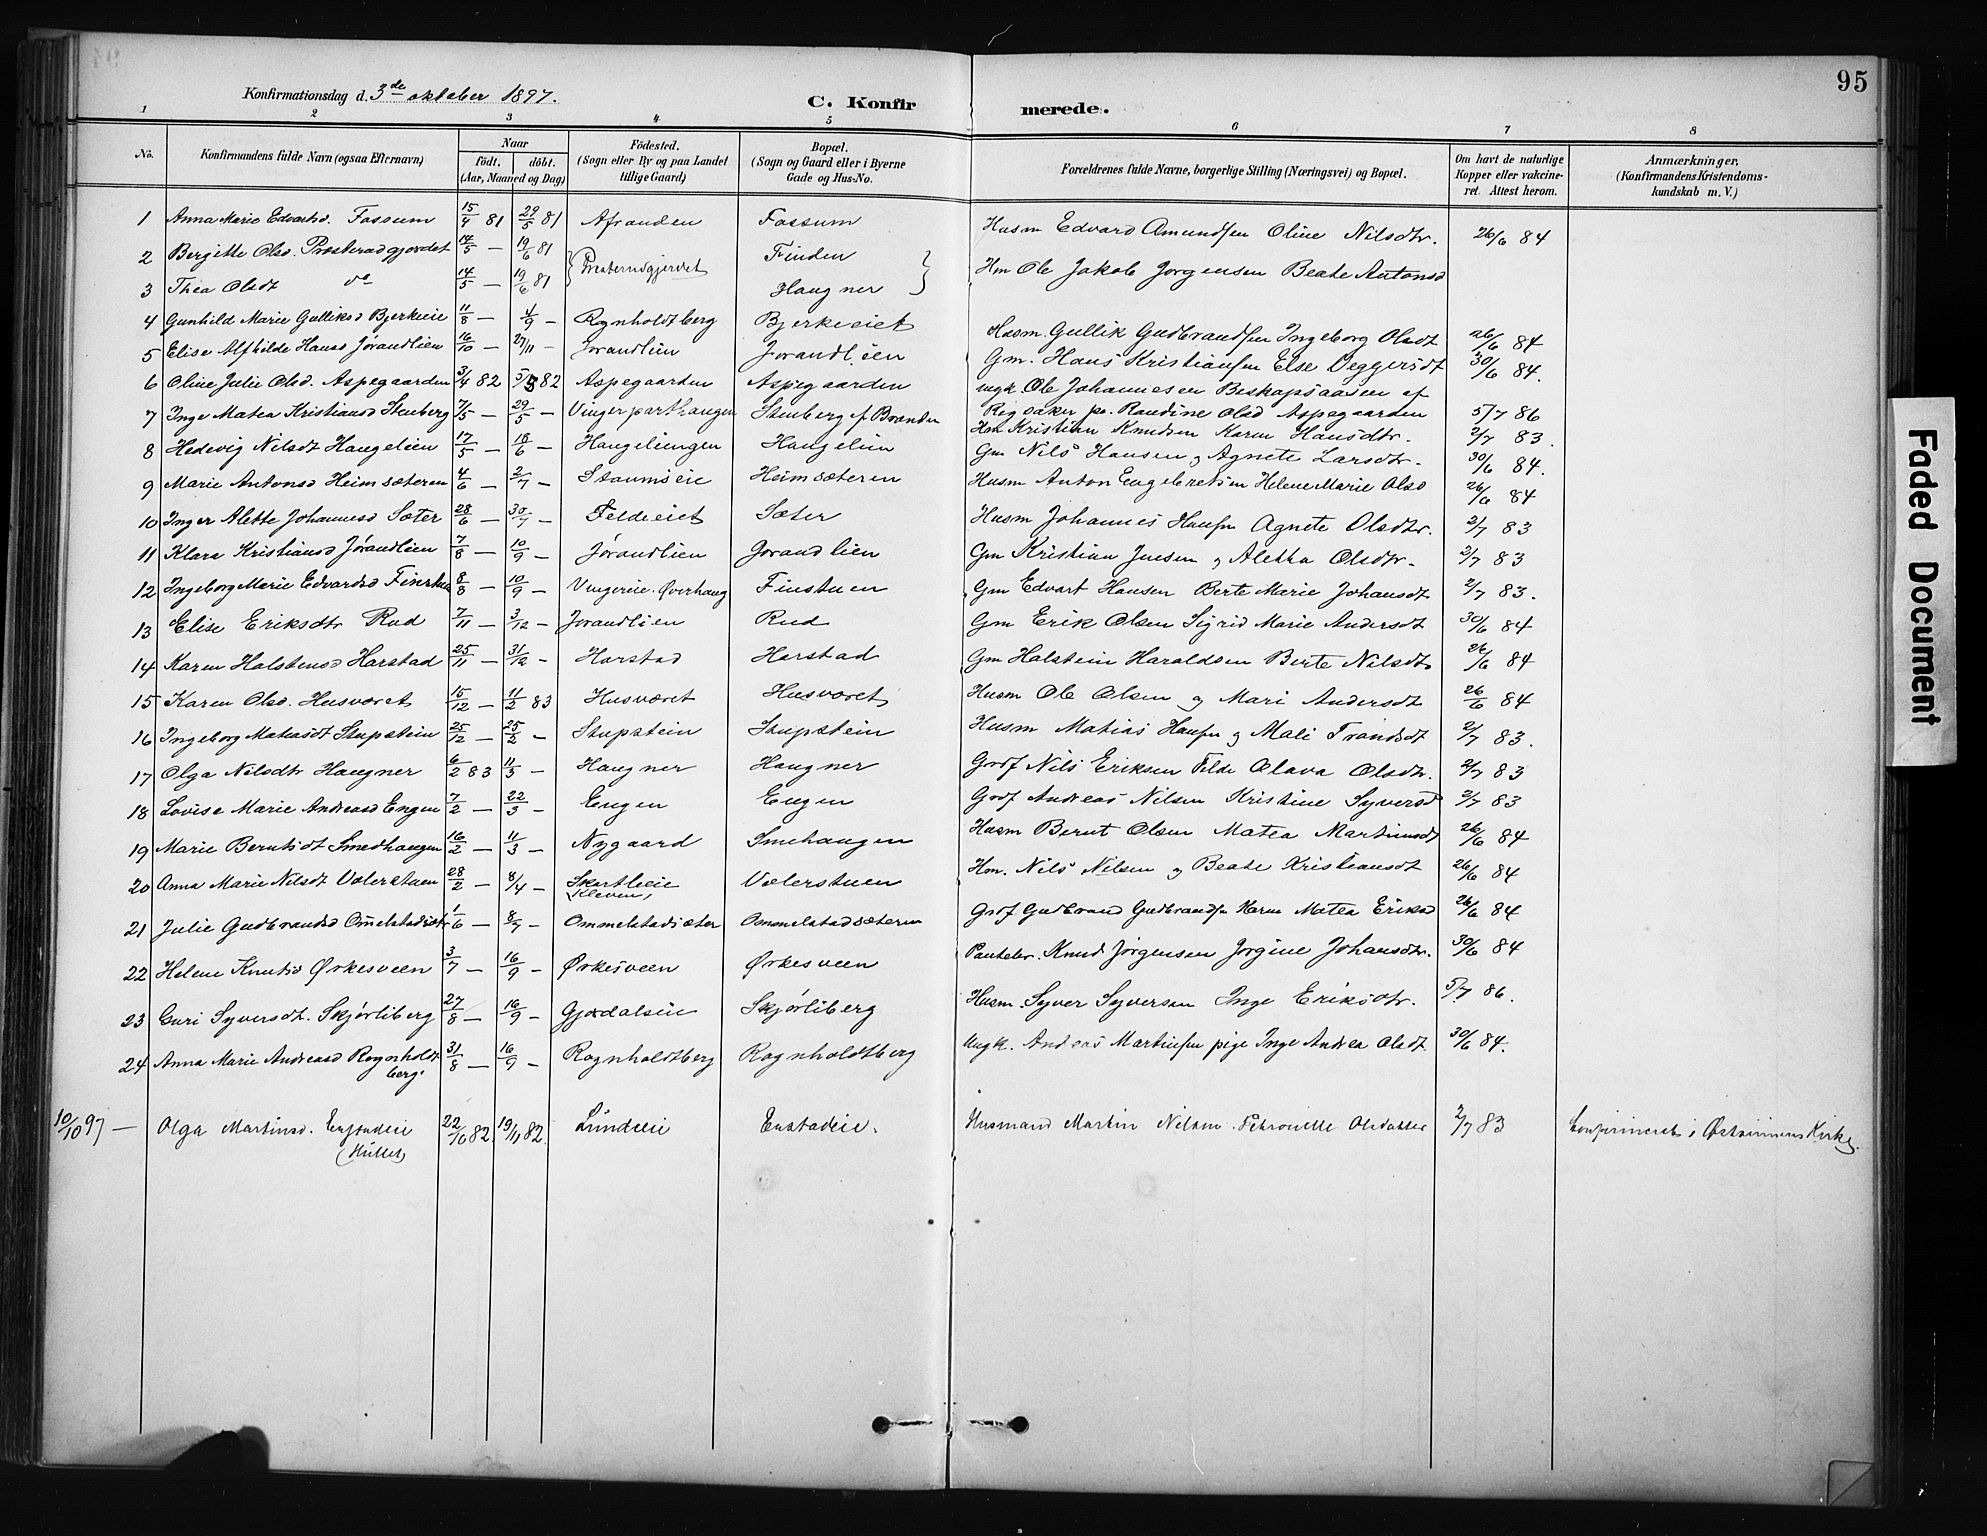 95
Konfirmationsdag d. 3de oktober 1897.
C. Konfirmerede.
1 2 3 4 5 6 7 8
No.
Konfirmandens fulde Navn (ogsaa Efternavn)
Naar
födt. döbt.
(Aar, Maaned og Dag)
Födested.
(Sogn eller By og paa Landet
tillige Gaard)
Bopæl.
(Sogn og Gaard eller i Byerne
Gade og Hus-No.
Forældrenes fulde Navne, borgerlige Stilling (Næringsvei) og Bopæl.
Om havt de naturlige
Kopper eller vakcine-
ret. Attest herom.
Anmærkninger.
(Konfirmandens Kristendoms-
kundskab m. V.)
1 Anna Marie Edvartsd. Fossum 15/4 81 29/5 81 Afranden Fossum Husm Edvard Amundsen Oline Nilsdtr. 26/6 84
2 Bergitte Olsd. Presterudgjordet 14/5 — 19/6 81 Presterudgjerdet Finden Hm Ole Jakob Jorgensen Beate Antonsd
3 Thea Olsdt do 14/5 — 19/6 81 Haugner
4 Gunhild Marie Gulliksd Bjerkeie 11/8 — 4/9 — Rognholdtberg Bjerkeeiet Husm. Gullik Gudbrandsen Ingeborg Olsdt 26/6 84
5 Elise Alfhilde Hansd Jørandlien 16/10 — 27/11 — Jorandlien Jorandlien Gm. Hans Kristiansen Else Veggersdt 30/6 84.
6 Oline Julie Olsd. Aspegaarden 3/4 82 5/5 82 Aspegaarden Aspegaarden ungk. Ole Johannesen Beskapsaasen af
Ringsaker pe. Raudine Olsd Aspegaarden 5/7 86
7 Inge Matea Kristiansd Stenberg 7/5 — 29/5 — Vingerparthaugen Stenberg f Branden Hm Kristian Knudsen Karen Hansdtr. 2/7 83.
8 Hedevig Nilsdt Haugelien 17/5 — 18/6 — Haugeliengen Haugelien Gm Nils Hansen og Agnete Larsdtr. 30/6 84.
9 Marie Antonsd Heimsæteren 4/6 — 2/7 — Staumseie Heimsæteren Husm Anton Engebretsen Helene Marie Olsd 26/6 84
10 Inger Alette Johannesd Sæter 28/6 — 30/7 — Feldeeiet Sæter Husm Johannes Hansen Agnete Olsdtr. 2/7 83
11 Klara Kristiansd Jørandlien 7/8 — 10/9 — Jørandlien Jorandlien Gm Kristian Jensen og Aletta Olsdtr. 2/7 83
12 Ingeborg Marie Edvardsd Finstuen 8/8 — 10/9 — Vingereie. Øverhaug Finstuen Gm Edvart Hansen Berte Marie Johansdt 2/7 83.
13 Elise Eriksdtr Rud 7/11 — 3/12 — Jorandlien Rud Gm Erik Olsen Sigrid Marie Andersdt 30/6 84
14 Karen Halstensd Harstad 25/11 — 31/12 — Harstad Harstad Gm Halstein Haraldsen Berte Nilsdt 26/6 84
15 Karen Olsd. Husværet 15/12 — 11/2 83 Husværet Husværet Husm Ole Olsen og Mari Andersdt 26/6 84
16 Ingeborg Matiasdt Stupstein 25/12 — 25/2 — Stupstein Stupstein Husm Matias Hansen og Mali Trondsdt 2/7 83.
17 Olga Nilsdtr Haugner 6/2 83 11/3 — Haugner Haugner Grdf Nils Eriksen Felde Olava Olsdtr. 2/7 83
18 Lovise Marie Andreasd Engen 7/2 — 22/3 — Engen Engen Grdf Andreas Nilsen Kristine Syversd 2/7 83
19 Marie Berntsdt Smedhaugen 16/2 — 11/3 — Nygaard Smehaugen Husm Bernt Olsen Matea Martinsdt 26/6 84
20 Anna Marie Nilsdt Volerstuen 28/2 — 8/4 — Skartleie (Kleven) Vælerstuen Hm. Nils Nilsen og Beate Kristiansdt 26/6 84
21 Julie Gudbrandsd Ommelstadsætr 1/6 — 8/7 — Ommelstadsæter Ommelstadsæteren Grdf Gudbrand Gudbrandsen Karen Matea Eriksd 26/6 84
22 Helene Knutsd Ørkesveen 3/7 — 16/9 — Ørkesveen Ørkesveen Panteler. Knud Jørgensen Jorgine Johansdtr. 30/6 84
23 Guri Syversdt. Skjørliberg 27/8 — 16/9 — Gjordalseie Skjørliberg Husm. Syver Syversen Inge Eriksdtr. 5/7 86.
24 Anna Marie Andreasd Rognholdt
berg. 31/8 — 16/9 — Rognholdtberg Rognholdtberg Ungk. Anders Martinsen pige Inge Andrea Olsdt 30/6 84.
10/10 97 — Olga Martinsd. Enstadeie 22/10 82. 19/11 82. Lundeie Enstadeie. Husmand Martin Nilsen. Petronille Olsdatter 2/7 83 Confirmeret i Østsinnens Kirke.
Faded Document